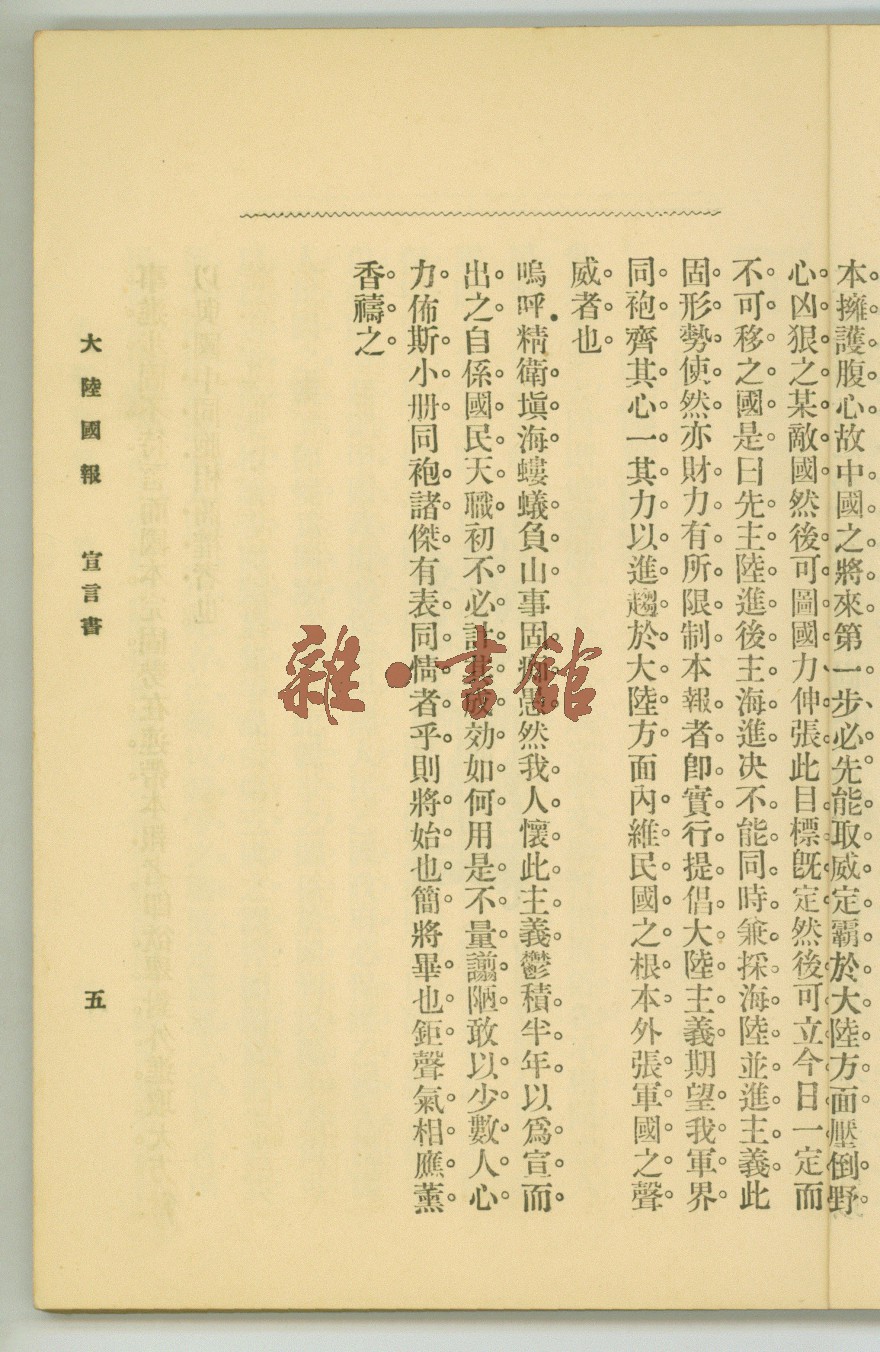 本擁護腹心故中國之將來第一步必先能取威定霸於大陸方面壓倒野
心凶狠之某敵國然後可圖國力伸張此目標旣定然後可立今日一定而
不可移之國是曰先主陸進後主海進决不能同時兼採海陸並進主義此
固形勢使然亦財力有所限制本報者卽實行提倡大陸主義期望我軍界
同袍齊其心一其力以進趨於大陸方面內維民國之根本外張軍國之聲
威者也
嗚呼精衛塡海螻蟻負山事固痴愚然我人懷此主義鬱積半年以爲宣而
出之自係國民天職初不必計其成効如何用是不量譾陋敢以少數人心
力佈斯小册同袍諸傑有表同情者乎則將始也簡將畢也鉅聲氣相應薰
香禱之
大陸國報 宣言書 五
雜·書館